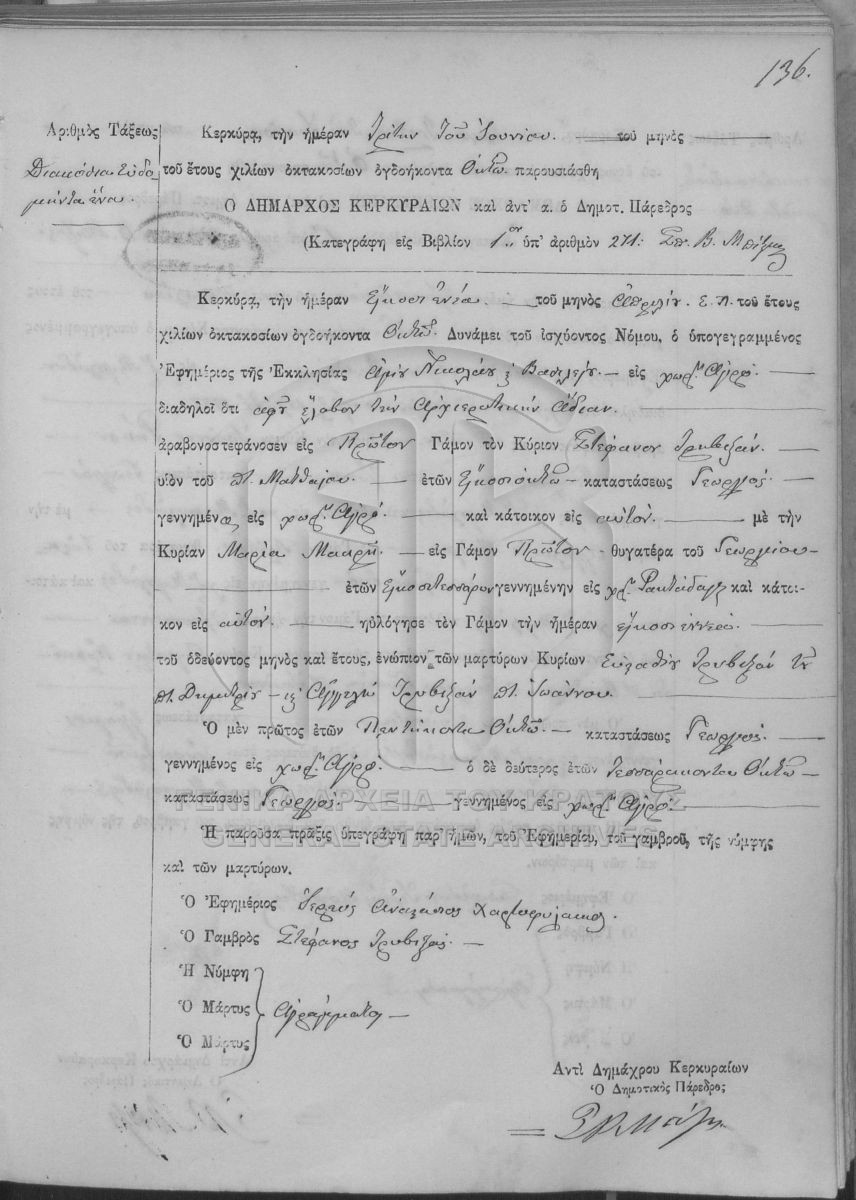 136.
Ἀριθμὸς Τάξεως
Διακόσια ἑβδο
μήντα ἕνα.
Κερκύρᾳ, τὴν ἡμέραν Τρίτην τοῦ Ἰουνίου. τοῦ μηνὸς
τοῦ ἔτους χιλίων ὀκτακοσίων ὀγδοήκοντα Ὀκτώ. παρουσιάσθη
Ὁ ΔΗΜΑΡΧΟΣ ΚΕΡΚΥΡΑΙΩΝ καὶ ἀντ' α. ὁ Δημοτ. Πάρεδρος
(Κατεγράφη εἰς Βιβλίον 1ον ὑπ' ἀριθμὸν 271:
Κερκύρᾳ, τὴν ἡμέραν εἴκοσι ἐννέα. τοῦ μηνὸς Ἀπριλίου. ἔ. π. τοῦ ἔτους
χιλίων ὀκτακοσίων ὀγδοήκοντα Ὀκτώ. Δυνάμει τοῦ ἰσχύοντος Νόμου, ὁ ὑπογεγραμμένος
Ἐφημέριος τῆς Ἐκκλησίας Ἁγίου Νικολάου εἰς χωρ. Ἀγρό.
διαδηλοῖ ὅτι ἀφ' οὗ ἔλαβον τὴν Ἀρχιερατικὴν ἄδειαν.
ἀραβονοστεφάνοσεν εἰς Πρῶτον Γάμον τὸν Κύριον Στέφανον Τριβυζάν.
υἱὸν τοῦ π. Ματθαίου. ἐτῶν εἴκοσι ὀκτώ καταστάσεως Γεωργός.
γεννημένα εἰς χωρ. Ἀγρό. καὶ κάτοικον εἰς αὐτόν. μὲ τὴν
Κυρίαν Μαρία Μακρῆ. εἰς Γάμον Πρῶτον θυγατέρα τοῦ Γεωργίου
ἐτῶν εἴκοσι τεσσάρων γεννημένην εἰς χωρ. καὶ κάτοι-
κον εἰς αὐτόν. ηὐλόγησε τὸν Γάμον τὴν ἡμέραν εἴκοσι ἐννέα.
τοῦ ὁδεύοντος μηνὸς καὶ ἔτους, ἐνώπιον τῶν μαρτύρων Κυρίων Εὐσταθίου Τριβυζάν τοῦ
π. Δημητρίου Τριβυζάν π. Ἰωάννου.
Ὁ μὲν πρῶτος ἐτῶν Πεντήκοντα Ὀκτώ. καταστάσεως Γεωργός.
γεννημένος εἰς χωρ. Ἀγρό. ὁ δὲ δεύτερος ἐτῶν Τεσσαράκοντα Ὀκτώ
καταστάσεως Γεωργός. γεννημένος εἰς χωρ. Ἀγρό.
ΓΕΝΙΚΑ ΑΡΧΕΙΑ ΤΟΥ ΚΡΑΤΟΥΣ
GENERAL STATE ARCHIVES
Ἡ παροῦσα πρᾶξις ὑπεγράφη παρ' ἡμῶν, τοῦ Ἐφημερίου, τοῦ γαμβροῦ, τῆς νύμφης
καὶ τῶν μαρτύρων.
Ὁ Ἐφημέριος Ἱερεὺς Χαρτοφύλακας.
Ὁ Γαμβρὸς Στέφανος Τριβυζάς.
Ἡ Νύμφη
Ὁ Μάρτυς Ἀγράμματοι
Ὁ Μάρτυς
Ἀντὶ Δημάρχου Κερκυραίων
Ὁ Δημοτικὸς Πάρεδρος